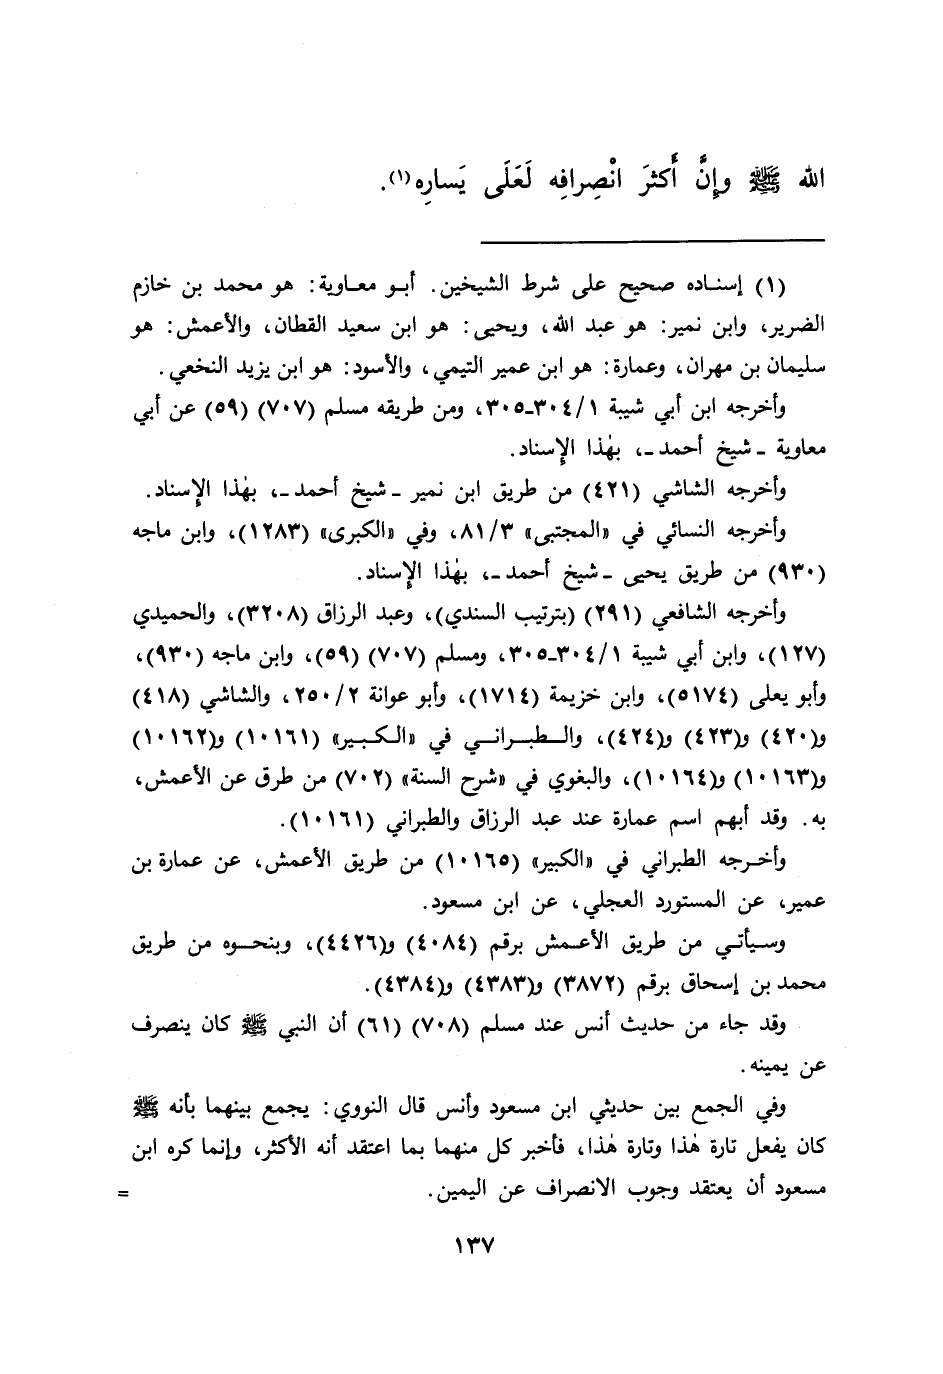 الله ﷺ وإِنَّ أَكثرَ انْصِرافِه لَعَلَى يَسارِه(١).
(١) إسناده صحيح على شرط الشيخين. أبو معاوية: هو محمد بن خازم
الضرير، وابن نمير: هو عبد الله، ويحيى: هو ابن سعيد القطان، والأعمش: هو
سليمان بن مهران، وعمارة: هو ابن عمير التيمي، والأسود: هو ابن يزيد النخعي.
وأخرجه ابن أبي شيبة ٣٠٤/١-٣٠٥، ومن طريقه مسلم (٧٠٧) (٥٩) عن أبي
معاوية - شيخ أحمد -، بهٰذا الإسناد.
وأخرجه الشاشي (٤٢١) من طريق ابن نمير - شيخ أحمد -، بهٰذا الإسناد.
وأخرجه النسائي في «المجتبى» ٨١/٣، وفي «الكبرى» (١٢٨٣)، وابن ماجه
(٩٣٠) من طريق يحيى - شيخ أحمد -، بهٰذا الإسناد.
وأخرجه الشافعي (٢٩١) (بترتيب السندي)، وعبد الرزاق (٣٢٠٨)، والحميدي
(١٢٧)، وابن أبي شيبة ٣٠٤/١-٣٠٥، ومسلم (٧٠٧) (٥٩)، وابن ماجه (٩٣٠)،
وأبو يعلى (٥١٧٤)، وابن خزيمة (١٧١٤)، وأبو عوانة ٢٥٠/٢، والشاشي (٤١٨)
و(٤٢٠) و(٤٢٣) و(٤٢٤)، والطبراني في «الكبير» (١٠١٦١) و(١٠١٦٢)
و(١٠١٦٣) و(١٠١٦٤)، والبغوي في «شرح السنة» (٧٠٢) من طرق عن الأعمش،
به. وقد أبهم اسم عمارة عند عبد الرزاق والطبراني (١٠١٦١).
وأخرجه الطبراني في «الكبير» (١٠١٦٥) من طريق الأعمش، عن عمارة بن
عمير، عن المستورد العجلي، عن ابن مسعود.
وسيأتي من طريق الأعمش برقم (٤٠٨٤) و(٤٤٢٦)، وبنحوه من طريق
محمد بن إسحاق برقم (٣٨٧٢) و(٤٣٨٣) و(٤٣٨٤).
وقد جاء من حديث أنس عند مسلم (٧٠٨) (٦١) أن النبي ﷺ كان ينصرف
عن يمينه.
وفي الجمع بين حديثي ابن مسعود وأنس قال النووي: يجمع بينهما بأنه ﷺ
كان يفعل تارة هٰذا وتارة هٰذا، فأخبر كل منهما بما اعتقد أنه الأكثر، وإنما كره ابن
مسعود أن يعتقد وجوب الانصراف عن اليمين. =
١٣٧